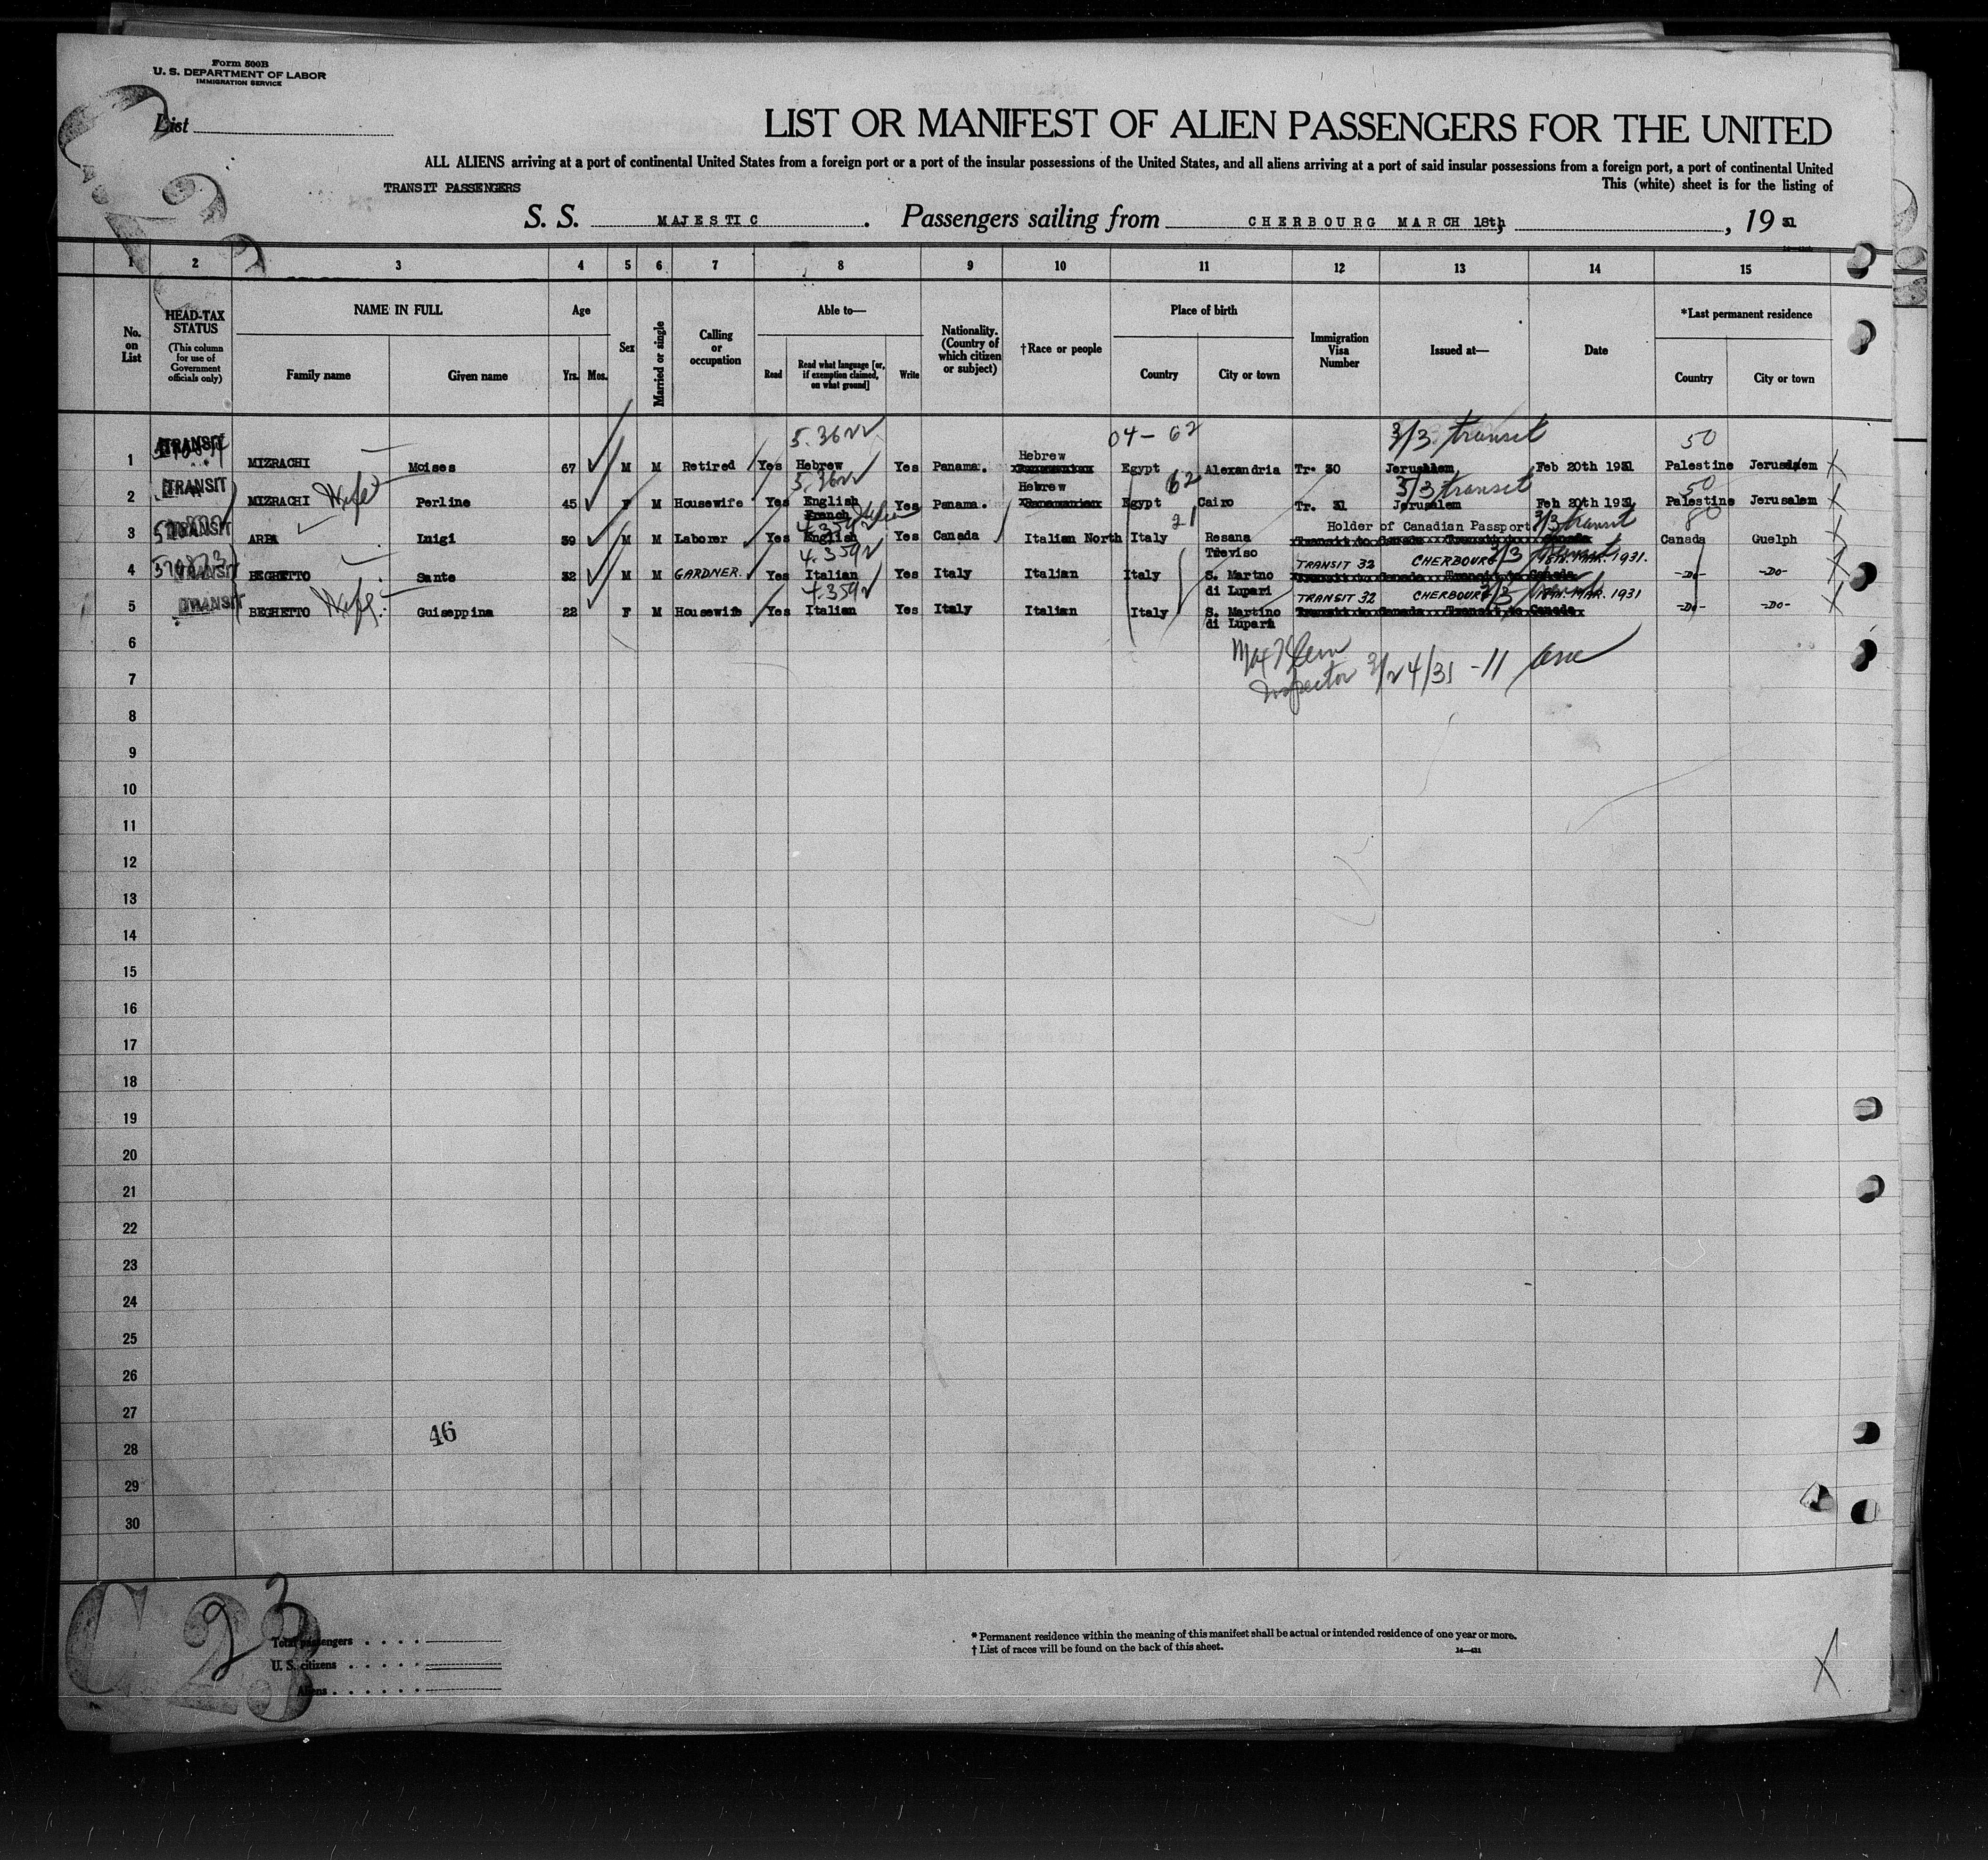 Form 500B
U. S. DEPARTMENT OF LABOR
IMMIGRATION SERVICE
List
LIST OR MANIFEST OF ALIEN PASSENGERS FOR THE UNITED
ALL ALIENS arriving at a port of continental United States from a foreign port or a port of the insular possessions of the United States, and all aliens arriving at a port of said insular possessions from a foreign port, a port of continental United
TRANSIT PASSENGERS This (white) sheet is for the listing of
S. S. MAJESTIC. Passengers sailing from CHERBOURG MARCH 18th, , 19 31
1 2 3 4 5 6 7 8 9 10 11 12 13 14 15
No. on List
HEAD-TAX STATUS
(This column for use of Government officials only)
NAME IN FULL
Family name Given name
Age
Yrs. Mos.
Sex
Married or single
Calling or occupation
Able to—
Read Read what language [or, if exemption claimed, on what ground] Write
Nationality. (Country of which citizen or subject)
†Race or people
Place of birth
Country City or town
Immigration Visa Number
Issued at—
Date
*Last permanent residence
Country City or town
5.3622 04-62 3/3 transit 50
1 TRANSIT MIZRACHI Moises 67 M M Retired Yes Hebrew Yes Panama. Hebrew Egypt Alexandria Tr. 30 Jerusalem, Feb 20th 1931 Palestine Jerusalem X
5.3622 62 3/3 transit 50
2 TRANSIT MIZRACHI Wife Perline 45 F M Housewife Yes English French Yes Panama. Hebrew Egypt Cairo Tr. 31 Jerusalem Feb 20th 1931 Palestine Jerusalem X
21 Holder of Canadian Passport 3/3 transit 80
3 TRANSIT ARPA Luigi 39 M M Laborer Yes English Yes Canada Italian North Italy Resana Treviso Transit to Canada Transit to Canada Canada Guelph X
4.3592
4 TRANSIT BEGHETTO Sante 32 M M GARDNER. Yes Italian Yes Italy Italian Italy S. Martno di Lupari TRANSIT 32 CHERBOURG 3/3 18TH. MAR. 1931. Transit to Canada Transit to Canada -Do- -Do- X
4.3592
5 TRANSIT BEGHETTO Wife Guiseppina 22 F M Housewife Yes Italian Yes Italy Italian Italy S. Martino di Lupara TRANSIT 32 CHERBOURG 3/3 18TH. MAR. 1931 Transit to Canada Transit to Canada -Do- -Do- X
6
Inspector 3/24/31 -11
7
8
9
10
11
12
13
14
15
16
17
18
19
20
21
22
23
24
25
26
27
46
28
29
30
C 23
23
Total passengers
U. S. citizens
Aliens
* Permanent residence within the meaning of this manifest shall be actual or intended residence of one year or more.
† List of races will be found on the back of this sheet. 14—431
X